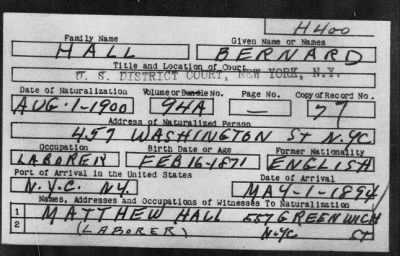 H400
Family Name Given Name or Names
HALL BERNARD
Title and Location of Court
U. S. DISTRICT COURT, NEW YORK, N.Y.
Date of Naturalization Volume or Bundle No. Page No. Copy of Record No.
AUG-1-1900 94A — 77
Address of Naturalized Person
457 WASHINGTON ST N.YC.
Occupation Birth Date or Age Former Nationality
LABORER FEB 16-1871 ENGLISH
Port of Arrival in the United States Date of Arrival
N.Y.C. N.Y. MAY-1-1894
Names, Addresses and Occupations of Witnesses To Naturalization
1 MATTHEW HALL 557 GREENWICH
2 (LABORER) N.YC. ST